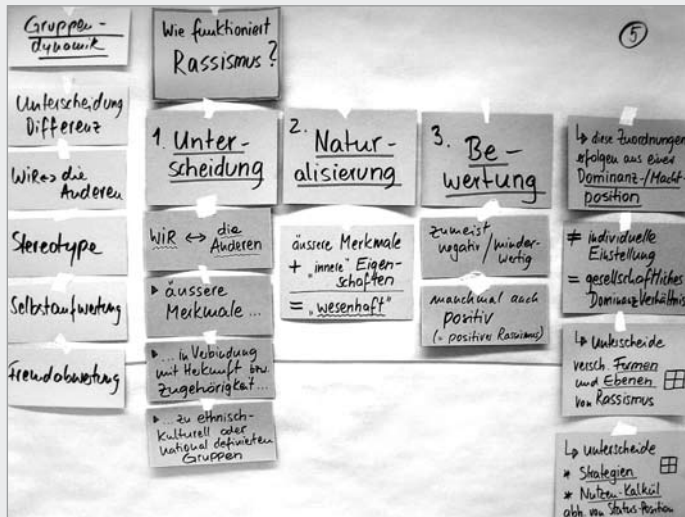 Gruppen-
dynamik
Unterscheidung
Differenz
WiR ↔ die
Anderen
Stereotype
Selbstaufwertung
Fremdabwertung
Wie funktioniert
Rassismus?
1. Unter-
scheidung
WiR ↔ die
Anderen
▸ äussere
Merkmale ...
▸ ... in Verbindung
mit Herkunft bzw.
Zugehörigkeit ...
▸ ... zu ethnisch-
kulturell oder
national definierten
Gruppen
2. Natur-
alisierung
äussere Merkmale
+ "innere" Eigen-
schaften
= "wesenhaft"
3. Be-
wertung
zumeist
negativ/minder-
wertig
manchmal auch
positiv
(= positiver Rassismus)
5
↳ diese Zuordnungen
erfolgen aus einer
Dominanz-/Macht-
position
≠ individuelle
Einstellung
= gesellschaftliches
Dominanzverhältnis
↳ unterscheide
versch. Formen
und Ebenen
von Rassismus
↳ unterscheide
* Strategien
* Nutzen-Kalkül
abh. von Status-Position